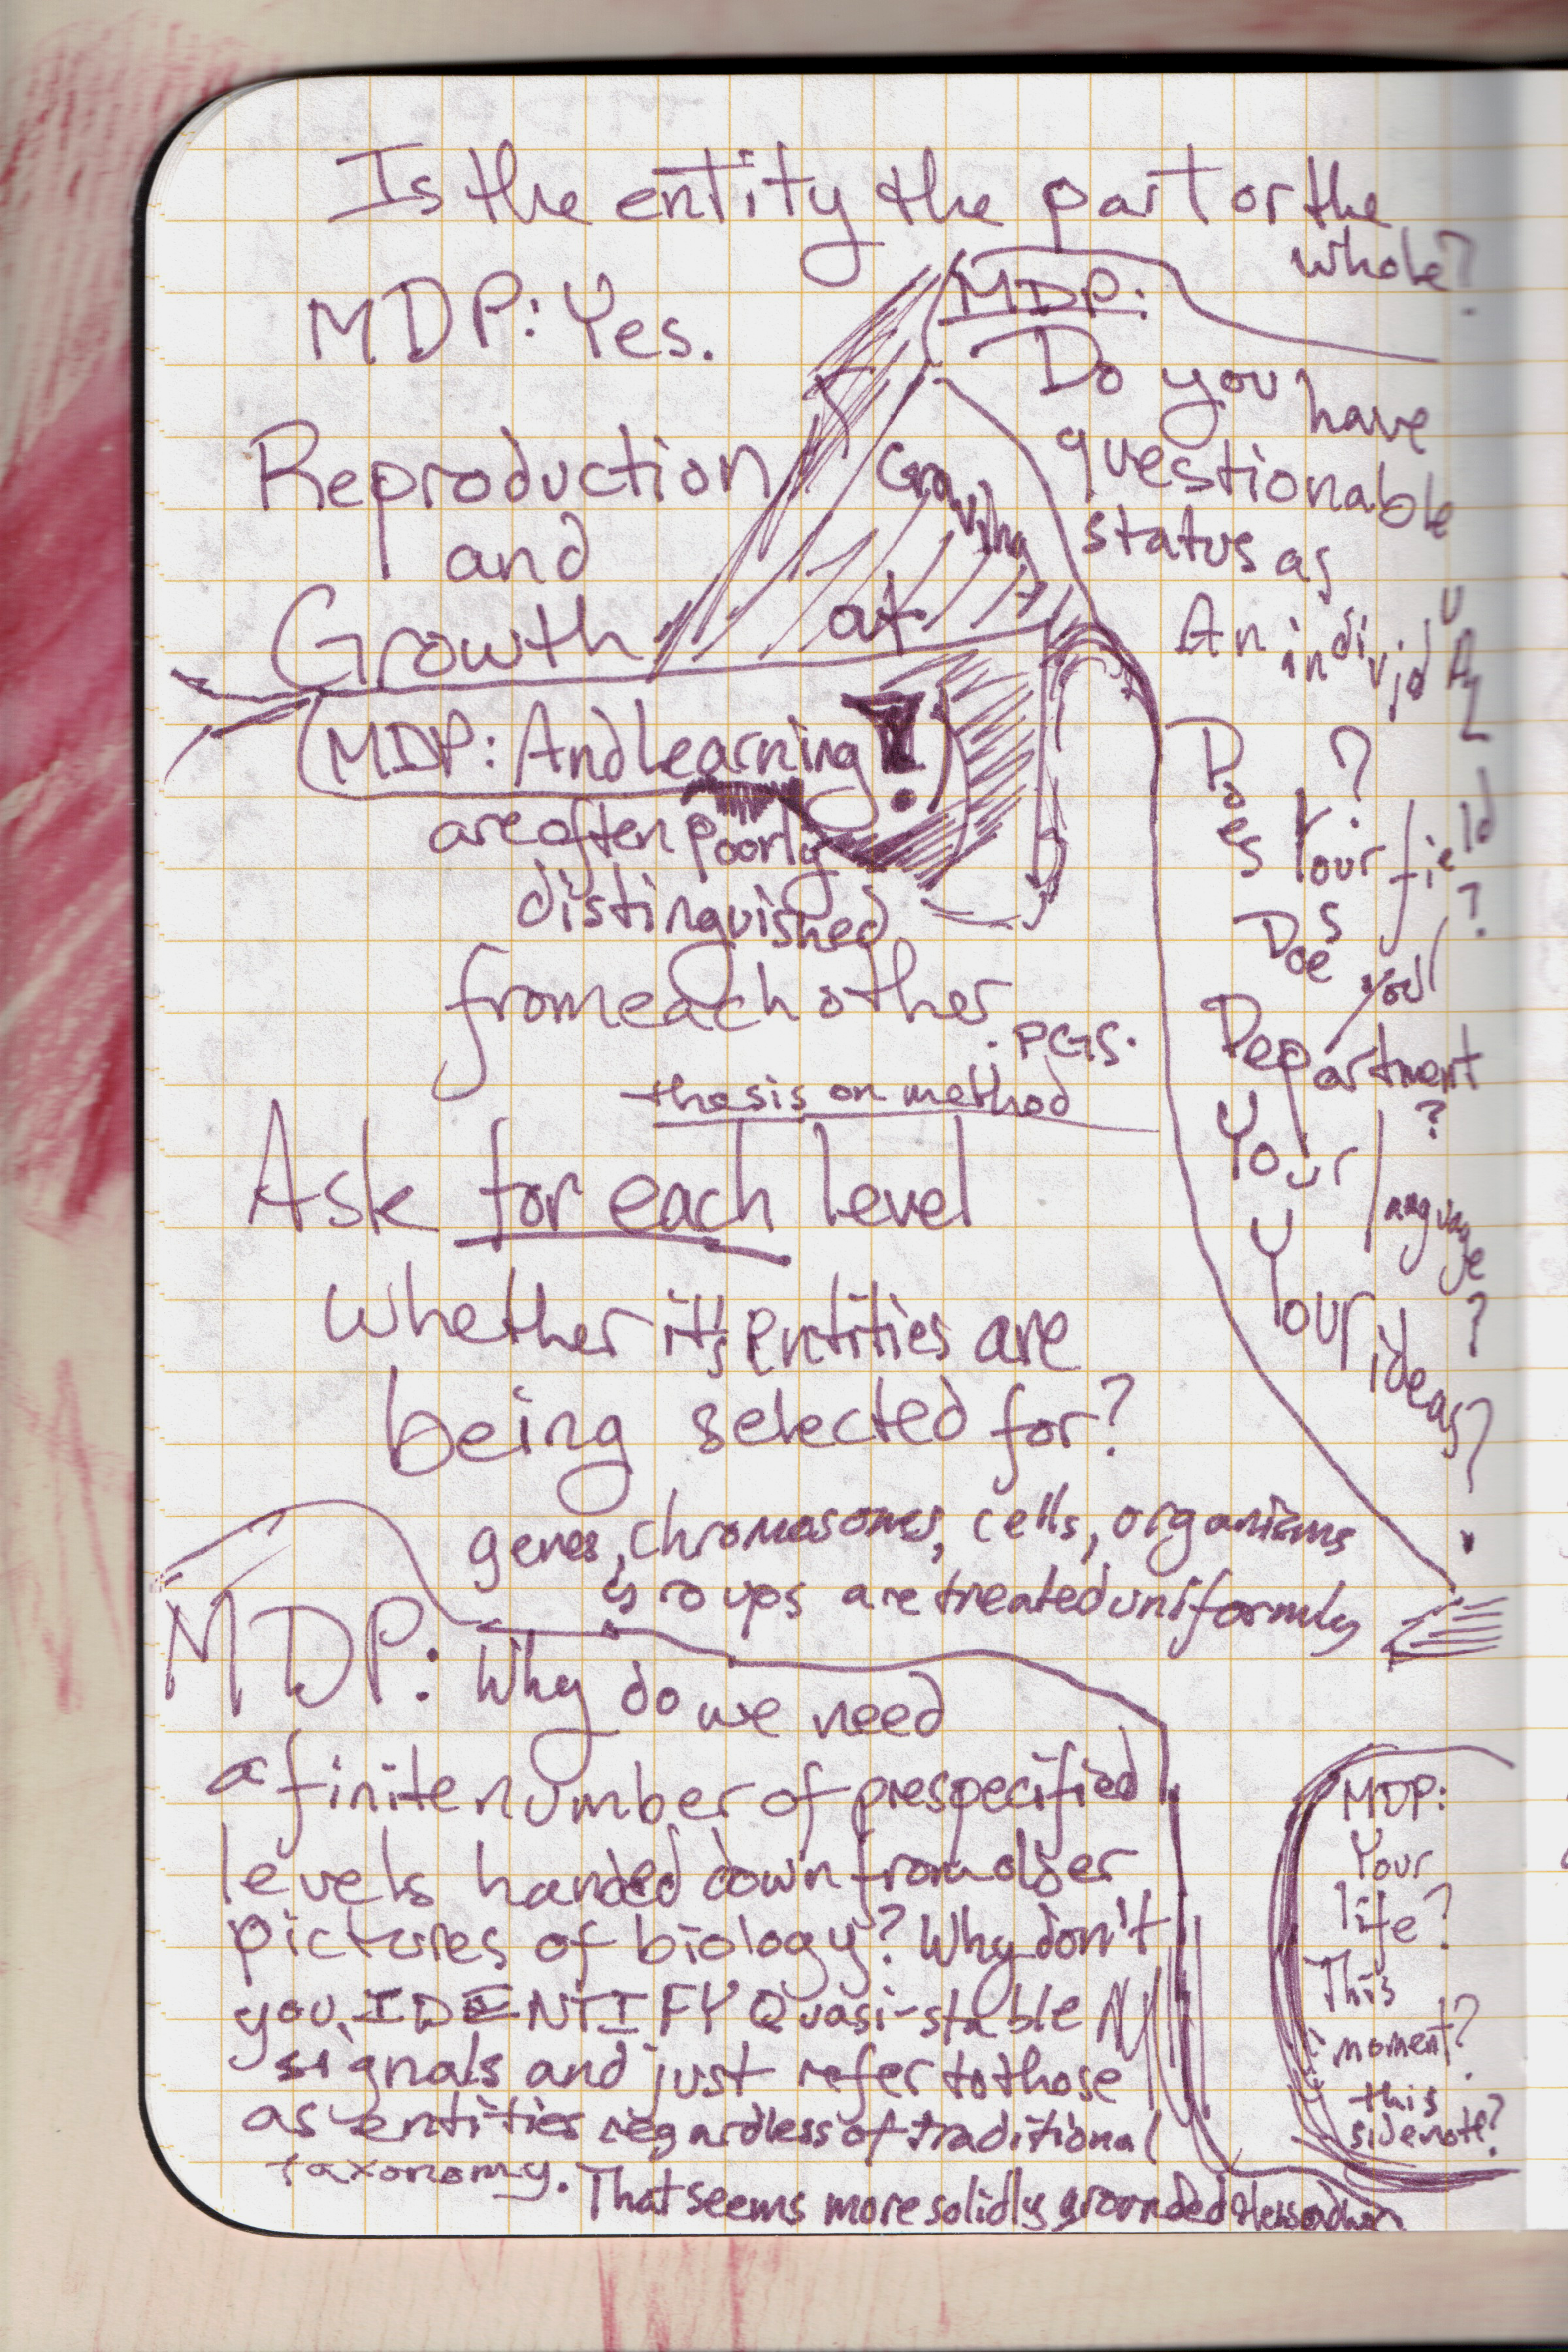 Is the entity the part or the
whole?
MDP: Yes.
Reproduction
and
Growth
(MDP: And Learning!)
are often poorly
distinguished
from each other
. PGS.
at
MDP:
Do you have
questionable
status as
An individUAL
?
Does Your field
?
Does your
Department
?
Your language
?
Your ideas?
thesis on method
Ask for each level
whether it's entities are
being selected for?
genes, chromasomes, cells, organisms
groups are treated uniformly
MDP: Why do we need
a finite number of prespecified
levels handed down from older
pictures of biology? Why don't
you IDENTIFY Quasi-stable
signals and just refer to those
as entities regardless of traditional
taxonomy. That seems more solidly grounded
MDP:
Your
life?
This
moment?
this
sidenote?